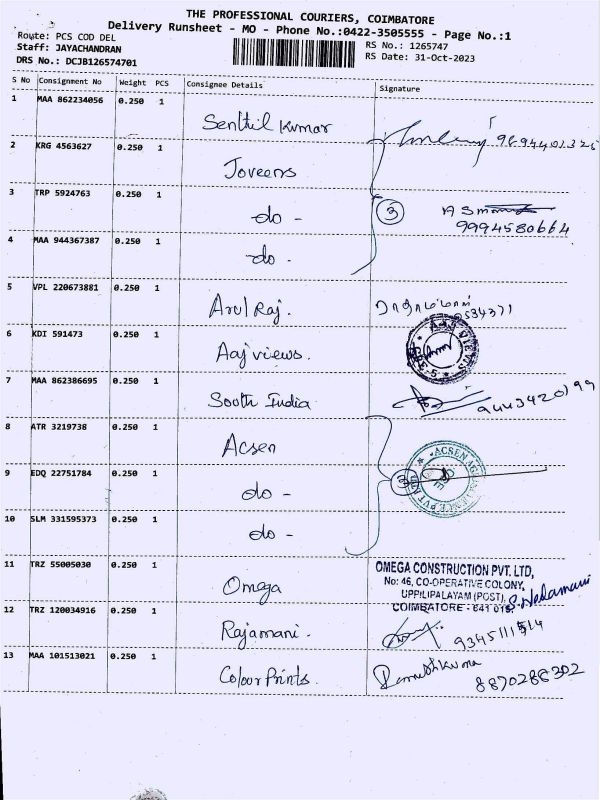 THE PROFESSIONAL COURIERS, COIMBATORE
Delivery Runsheet - MO - Phone No.:0422-3505555 - Page No.:1
Route: PCS COD DEL
Staff: JAYACHANDRAN
DRS No.: DCJB126574701
RS No.: 1265747
RS Date: 31-Oct-2023
S No Consignment No Weight PCS Consignee Details Signature
1 MAA 862234056 0.250 1 Senthil Kumar
2 KRG 4563627 0.250 1 Joveens
3 TRP 5924763 0.250 1 do - 3
9994580664
4 MAA 944367387 0.250 1 do -
5 VPL 220673881 0.250 1 Arul Raj.
6 KDI 591473 0.250 1 Aaj views. AAJ VIEWS
7 MAA 862386695 0.250 1 South India 9443420199
8 ATR 3219738 0.250 1 Acsen
9 EDQ 22751784 0.250 1 do - 3
10 SLM 331595373 0.250 1 do -
11 TRZ 55005030 0.250 1 Omega
OMEGA CONSTRUCTION PVT. LTD,
No: 46, CO-OPERATIVE COLONY,
UPPILIPALAYAM (POST),
COIMBATORE - 641 015.
12 TRZ 120034916 0.250 1 Rajamani.
13 MAA 101513021 0.250 1 Colour Prints.
8870288302